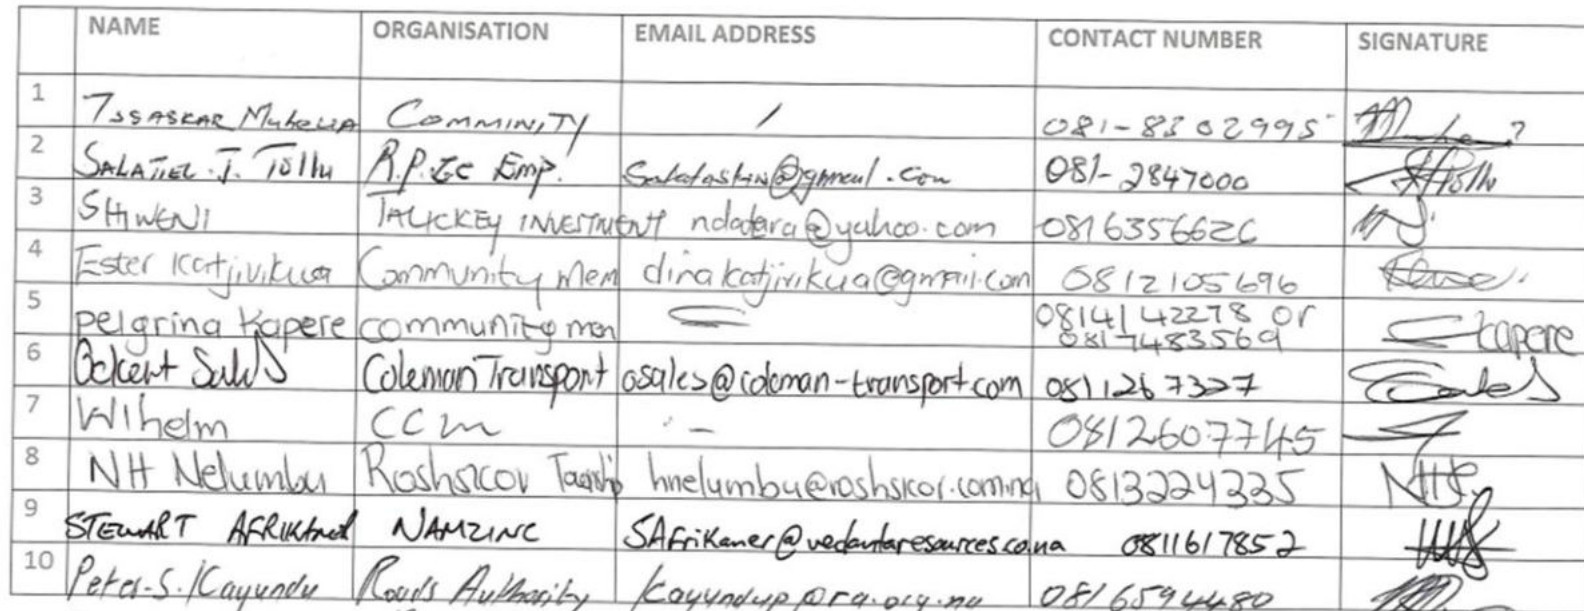 NAME ORGANISATION EMAIL ADDRESS CONTACT NUMBER SIGNATURE
1 COMMINITY / 081-8302995
2 SALATIEL .J. Emp. 081-2847000
3 SHIWENI INVESTMENT ndadara@yahoo.com
4 Ester Katjivikua Community Mem dinakatjivikua@gmail.com 0812105696
5 pelgrina Kapere community mem 0814142278 or
0817483569 kapere
6 Coleman Transport osales@coleman-transport.com 0811267327
7 Wlhelm CCM - 0812607745
8 NH Nelumbu hnelumbu@roshskor.com.na 0813224335
9 STEWART NAMZINC SAfrikaner@vedantaresources.co.na 0811617852
10 Peter-S. Kayundu Roads Authority kayundup@ra.org.na 0816594480